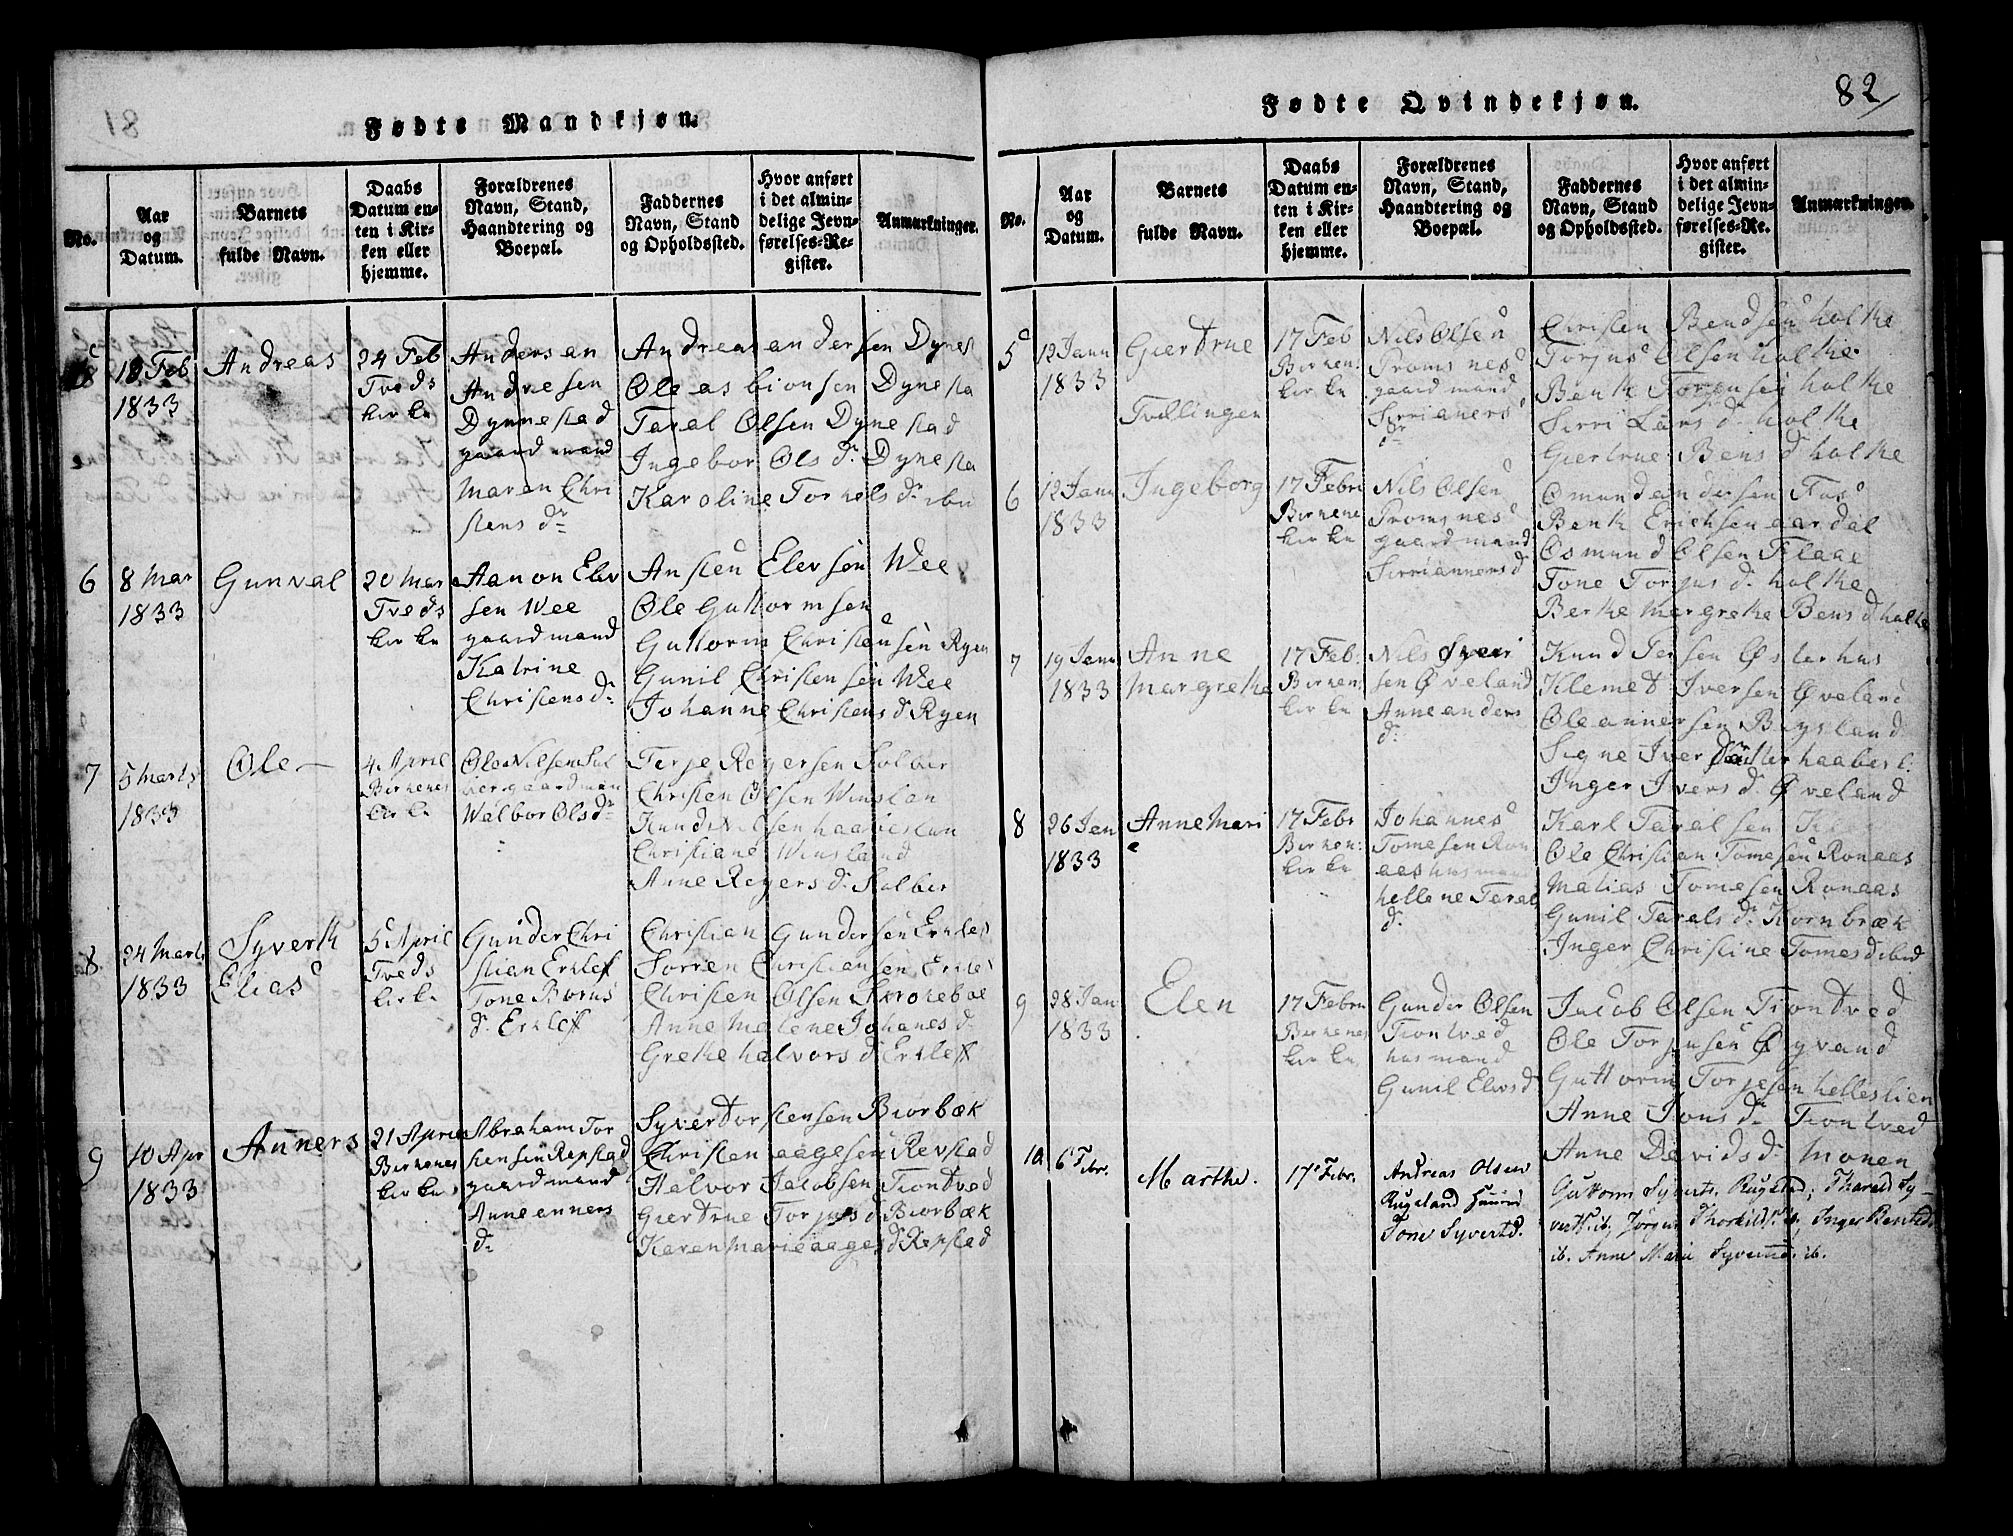 81
Fødte Mandkjøn.
No.
Aar
og
Datum.
Barnets
fulde Navn.
Daabs
Datum en-
ten i Kir-
ken eller
hjemme.
Forældrenes
Navn, Stand,
Haandtering og
Boepæl.
Faddernes
Navn, Stand
og Opholdssted.
Hvor anført
i det almin-
delige Jevn-
førelses-Re-
gister.
Anmærkninger.
18 Feb
1833
Andreas
24 Feb
Tveds
kirke
Anders an
dresen
Dynnestad
gaard mand
Maren Chri
stens dr
Andreas andersen Dynes
Ole asbionsen Dynesta
Taral Olsen Dynestad
Ingebor Ols dr Dynesta
Karoline Torkels dr ibn
6
8 Mar
1833
Gunval
20 Mar
Tveds
kirke
Aanon Elev
sen Wee
gaardmand
Katrine
Christens dr
Ansten Elevsen Wee
Ole Guttormsen
Guttorm Christensen Ryen
Gunil Christensen Wee
Johanne Christens d Ryen
7
5 Marts
1833
Ole
4 April
Birkenes
kirke
Ole Nilsen Sol
ber gaardman
Walbor Ols dr
Terje Reyersen Solber
Christen Olsen Winslan
Knud Nilsen haabeslan
Christiane Winsland
Anne Reyers d Solber
8
24 Marts
1833
Syverth
Elias
5 April
Tveds
kirke
Gunder Chri
stian Erklef
Tone Børns
d. Erklef
Christian Gundersen Erklef
Sørren Christiansen Erklef
Christen Olsen Krokeboe
Anne Malene Johanes d
Grethe halvors d Erklef
9
10 Apr
1833
Anners
21 April
Birkenes
kirke
Abraham Tor
stensen Repstad
gaardmand
Anne enners
dr
Syver Torstensen Biorbæk
Christen aagesen Revstad
Halvor Jacobsen Tiontved
Giertrue Torjus d Biorbæk
Karen Marie aages d Repstad
82
Fødte Qvindekjøn.
No.
Aar
og
Datum.
Barnets
fulde Navn.
Daabs
Datum en-
ten i Kir-
ken eller
hjemme.
Forældrenes
Navn, Stand,
Haandtering og
Boepæl.
Faddernes
Navn, Stand
og Opholdssted.
Hvor anført
i det almin-
delige Jevn-
førelses-Re-
gister.
Anmærkninger.
5
12 Janu
1833
Giertrue
Tvillinger
17 Feb
Birkenes
kirke
Nils Olsen
Tromsnes
gaardmand
Sirri aners
dr
Christen Bendsen holthe
Torjus Olsen holthe
Benth Torjusen holthe
Sirri Lars d. holthe
Giertrue Bens d holthe
6
12 Janu
1833
Ingeborg
17 Febr
Birkene
kirke
Nils Olsen
Tromsnes
gaardmand
Sirri anners d
Omund andersen Fos
Benth Erichsen aardal
Osmund Olsen Flaae
Tone Torjus d. holthe
Berthe Margrethe Bens d holthe
7
19 Janu
1833
Anne
Margrethe
17 Feb.
Birkenes
kirke
Nils Iver
sen Øveland
Anne anders
dr
Knud Jensen Østerhus
Klemet Iversen Øveland
Ole annersen Bygsland
Signe Iver Datter haabesl.
Inger Ivers d. Øveland
8
26 Jan
1833
Anne Mari
e
17 Febr
Birkenes
kirke
Johannes
Tomesen Ron
aas husmand
hellene Taral
dr
Karl Taralsen
Ole Christian Tomesen Ronaas
Matias Tomesen Ronaas
Gunil Tarals d. Kornbræk
Inger Christine Tomes d ibid
9
28 Jan
1833
Elen
17 Febru
Birkenes
kirke
Gunder Olsen
Tiontved
husmand
Gunil Elevs d
Jacob Olsen Tiontved
Ole Torjusen Øygvand
Guttorm Torjesen helleslien
Anne Jons dr Tiontved
Anne Davids dr Monen
10
6 Febr.
Marthe.
17 Febr.
Andreas Olsen
Rugsland
Tone Syverts d.
Guttorm Syverts. Rugsland; Tharald Sy-
verts. ib. Jörgen Thorkilds. ib; Inger Bentsd.
ib. Anne Marie Syvertsd. ib.